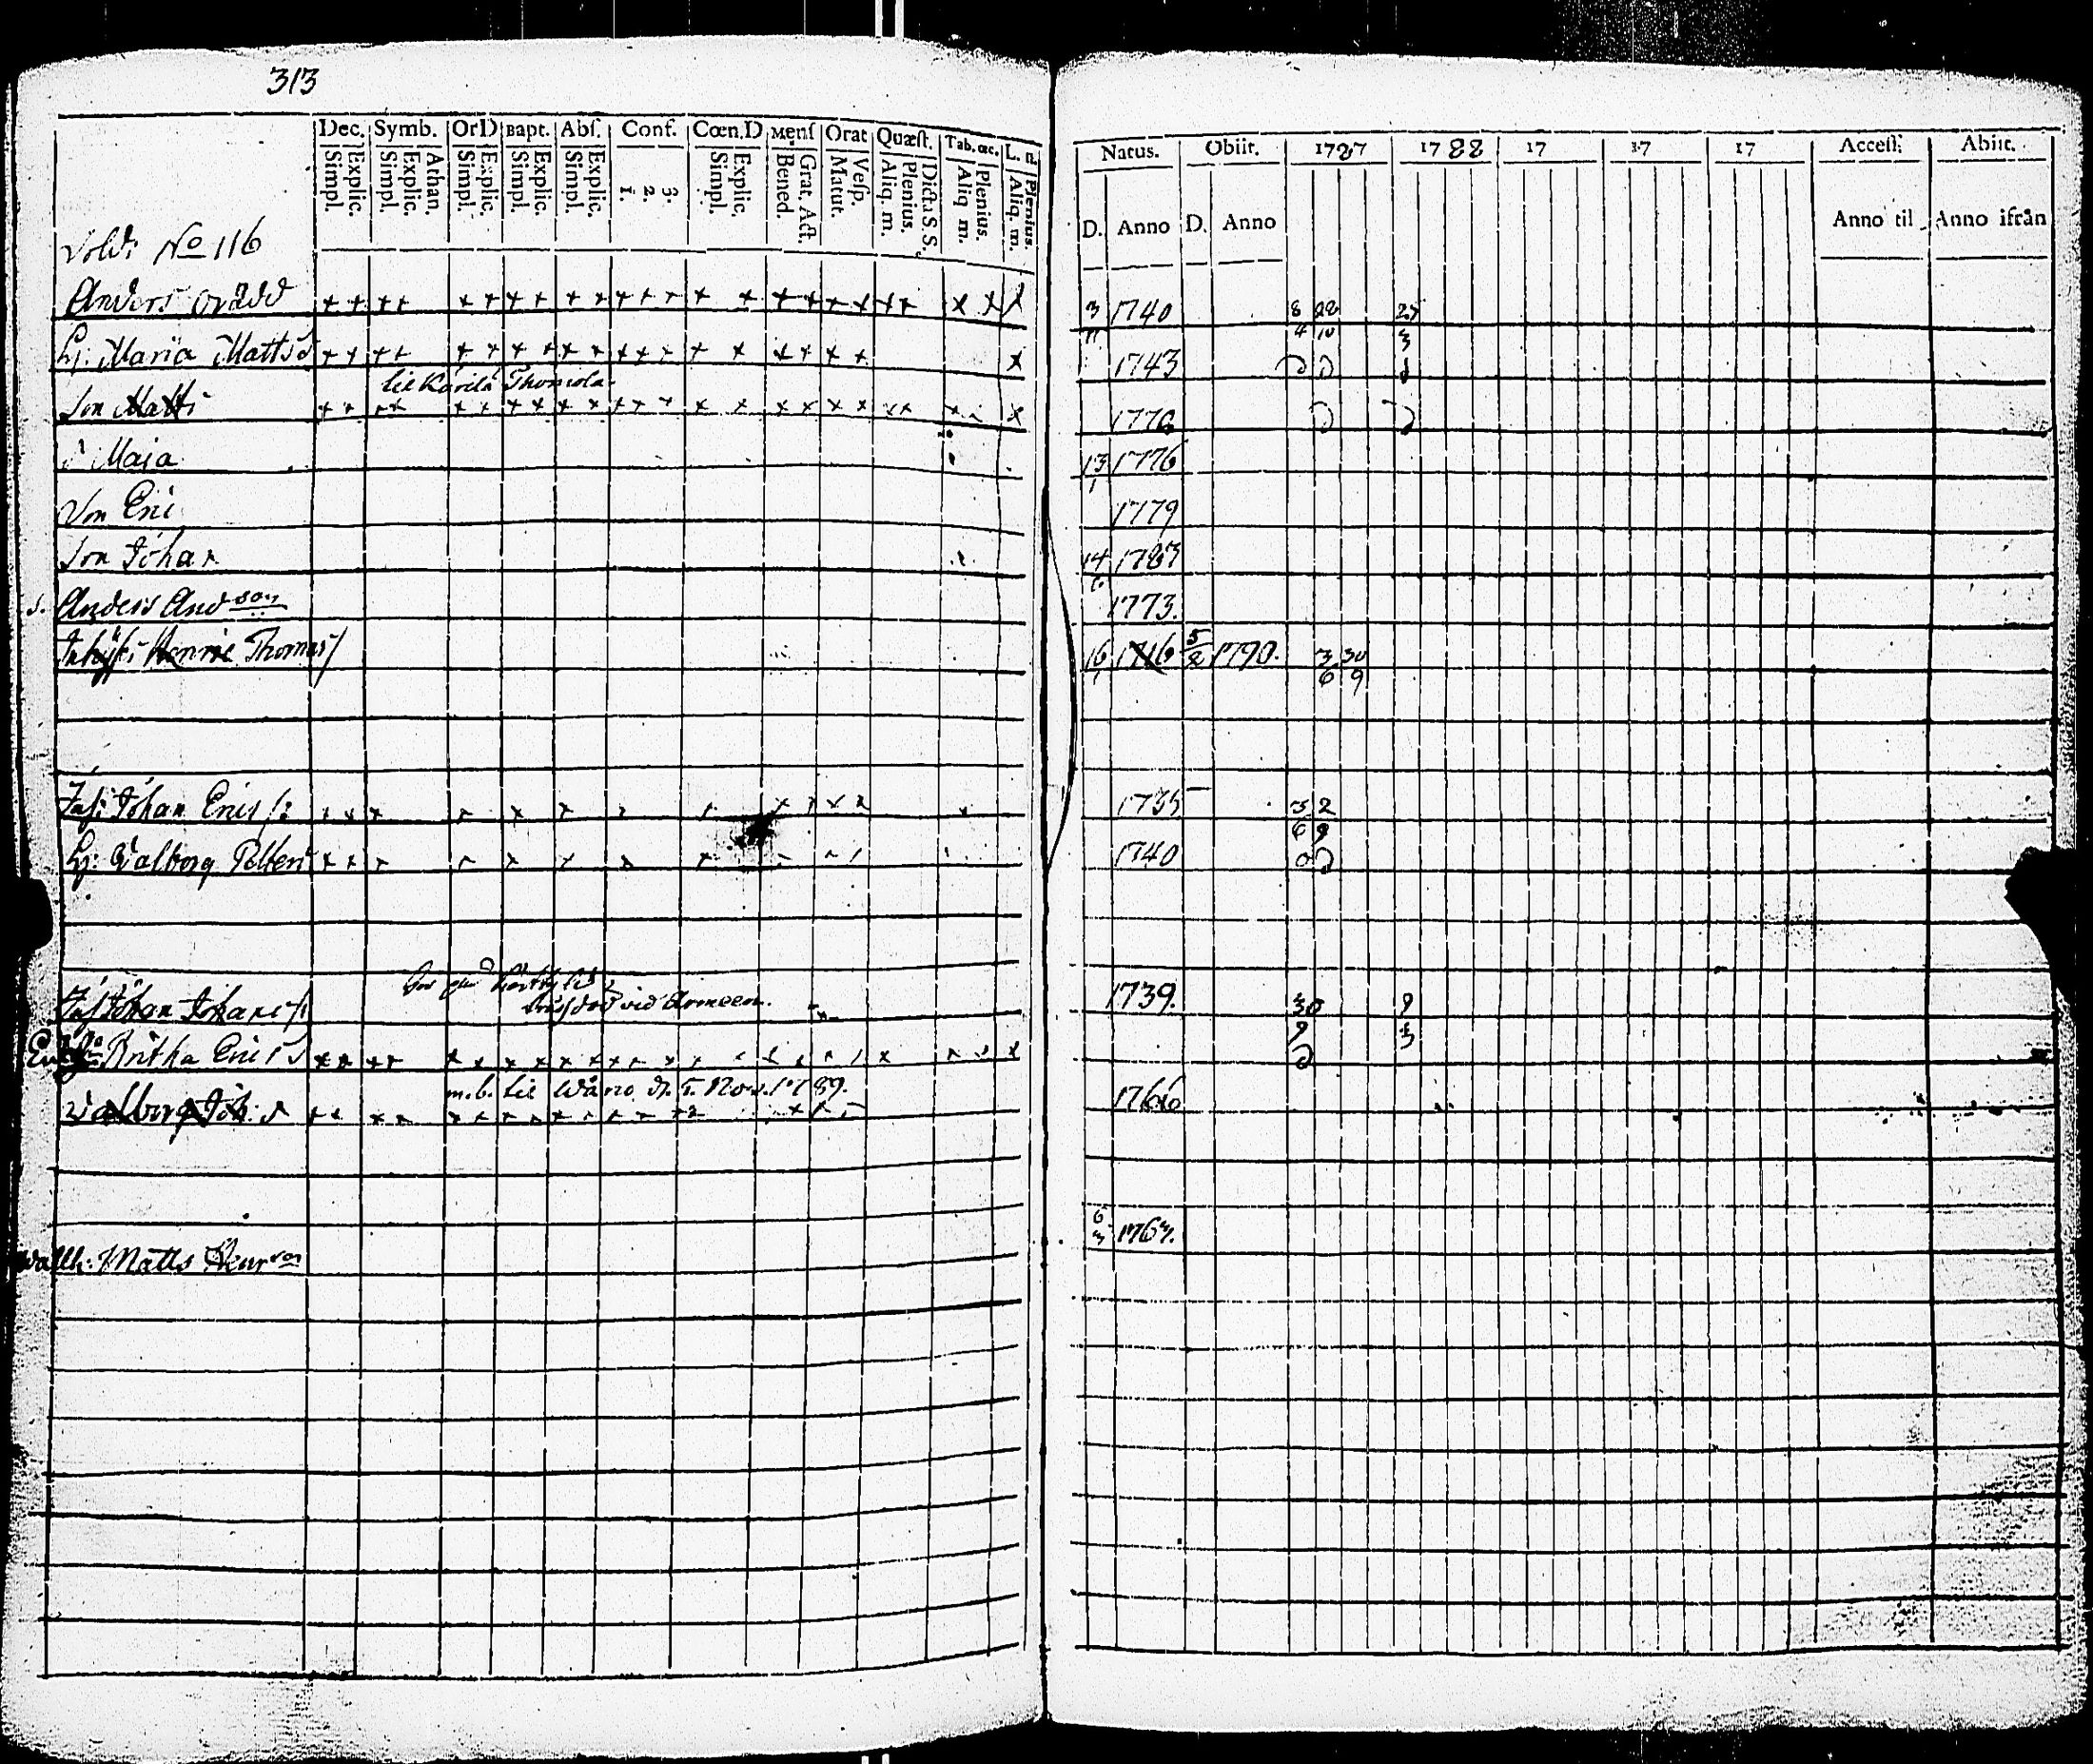 313
Dec. Symb. OrD Bapt. Abſ. Conf. Cœn. D Menſ Orat Quæſt. Tab. œc. L. ſt.
Simpl. Explic. Simpl. Explic. Athan. Simpl. Explic. Simpl. Explic. Simpl. Explic. 1. 2. 3. Simpl. Explic. Bened. Grat. Act. Matut. Veſp. Aliq. m. Plenius. Dicta S S. Aliq m. Plenius. Aliq. m. Plenius.
Natus. Obiit. 1787 1788 17 17 17 Acceſſ. Abiit.
D. Anno D. Anno Anno til Anno ifrån
Sold: No 116
Anders orädd 3/11 1740 8/4 28/10 25/3
H: Maria Matts d 1743
til Karila Thomola
Son Matti 1770
d Maja 13/1 1776
Son Eric
1779
Son Johan 14/6 1783
s. Anders Andson 1773.
Inhys: Henric Thomas/ 16/1 1716 5/2 1790. 3/6 30/9
Inh: Johan Erics /: 1735 3/6 2/9
H: Walborg Petters 1740
död vid Armeen.
Inh Johan Johans /: 1739. 30/9
Enk: Britha Erics d
m. b. til Wåno d. 5. Nov. 1789.
Walborg Joh: d 1766
Matts Henrson 6/3 1763.